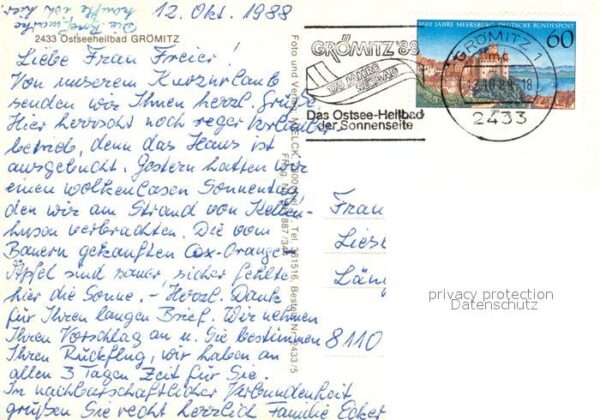 Die Briefmarke
kaufte ich hier.
12. Okt. 1988
2433 Ostseeheilbad GRÖMITZ
Liebe Frau Freier!
Von unserem Kurzurlaub
senden wir Ihnen herzl. Grüße
Hier herrscht noch reger Verlaubs
betrieb, denn das Haus ist
ausgebucht. Gestern hatten wir
einen wolkenlosen Sonnentag
den wir am Strand von Kellen-
husen verbrachten. Die vom
Bauern gekauften Cox-Orange
Äpfel sind sauer sicher fehlte
hier die Sonne. - Herzl. Dank
für Ihren langen Brief. Wir nehmen
Ihren Vorschlag an u. Sie bestimmen
Ihren Rückflug, wir haben an
allen 3 Tagen Zeit für Sie.
In nachbarschaftlicher Verbundenheit
grüßen Sie recht herzlich Familie Ecker
Foto und Verlag
Tel. 331516. Bestell-Nr.
GRÖMITZ '88
175 JAHRE
SEEBAD
Das Ostsee-Heilbad
der Sonnenseite
1000 JAHRE MEERSBURG DEUTSCHE BUNDESPOST
60
GRÖMITZ 1
2433
Frau
Liese
Läng
8110
privacy protection
Datenschutz